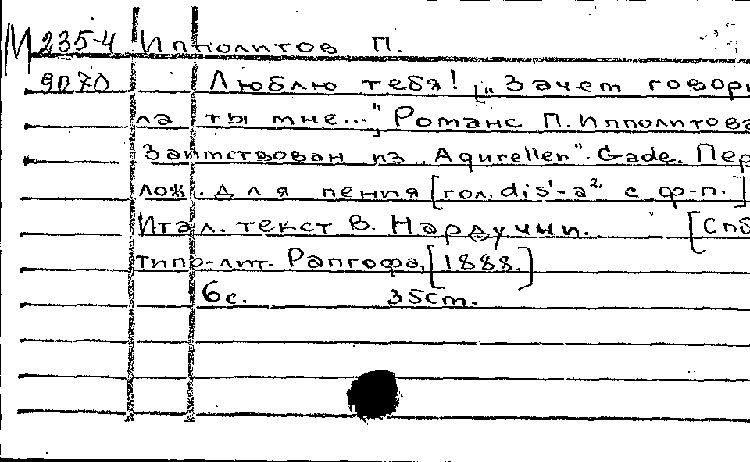 М 235-4 Ипполитов П.
9070 Люблю тебя! [„Зачем говори
ла ты мне..."] Романс П. Ипполитова.
Заимствован из „Aqurellen". Gade. Пер
лож. для пения [гол. dis¹-a² с ф-п.]
Итал. текст В. Нардуччи. [Спб
типо-лит. Рапгофа, [1888.]
6с. 35cm.